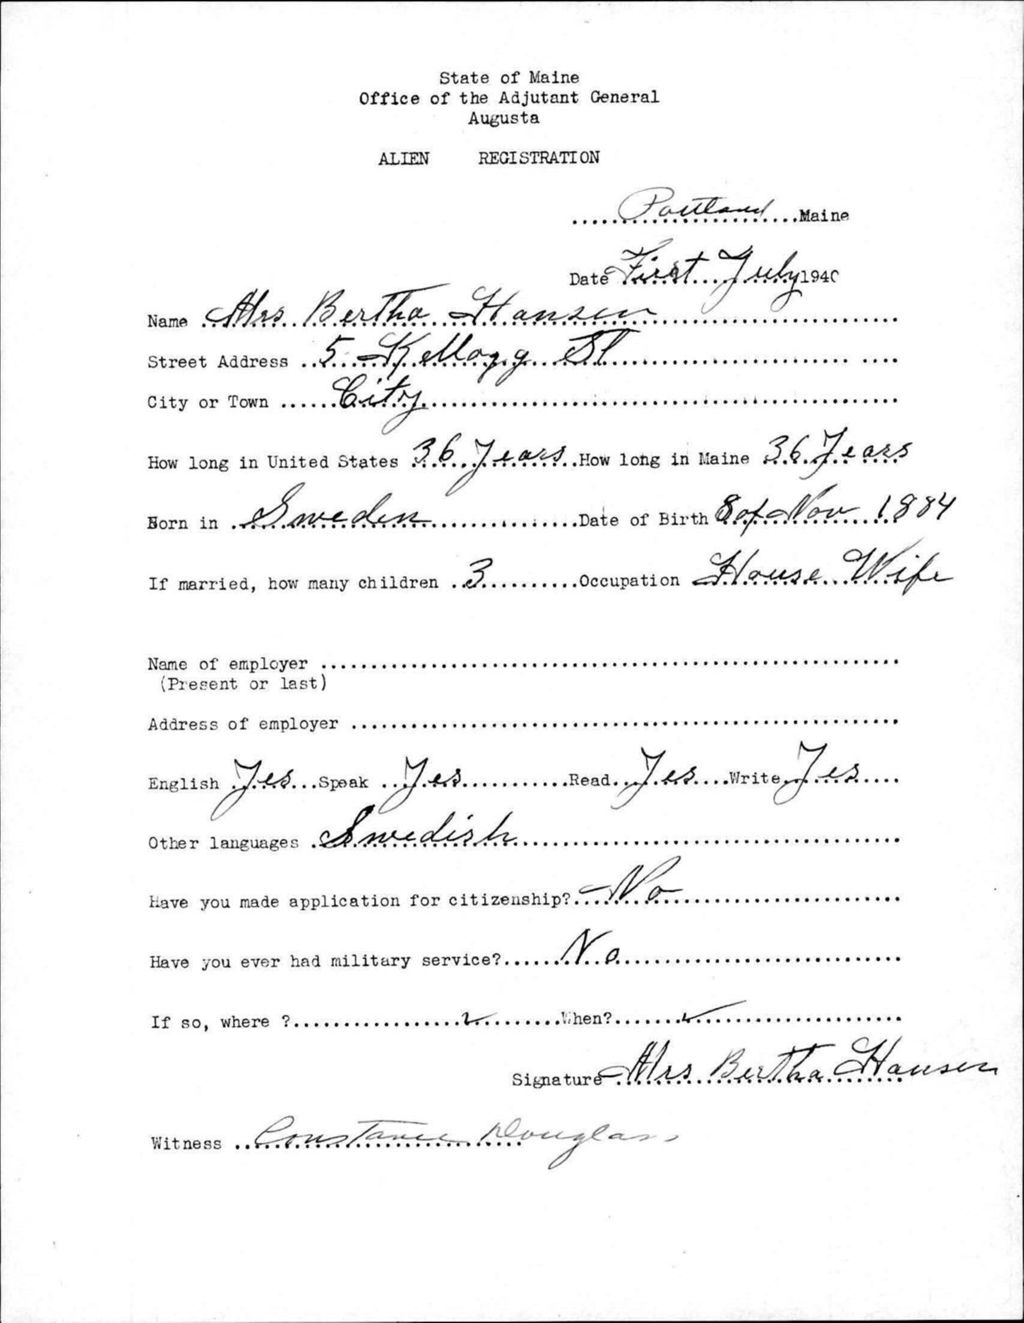 State of Maine
Office of the Adjutant General
Augusta
ALIEN REGISTRATION
Portland Maine
Date First July 1940
Name Mrs Bertha Hansen
Street Address 5 Kellogg St
City or Town City
How long in United States 36 Years How long in Maine 36 Years
Born in Sweden Date of Birth 8 of Nov 1884
If married, how many children 3 Occupation House Wife
Name of employer
(Present or last)
Address of employer
English Yes Speak Yes Read Yes Write Yes
Other languages Swedish
Have you made application for citizenship? No
Have you ever had military service? No
If so, where ? When?
Signature Mrs Bertha Hansen
Witness Constance Douglass